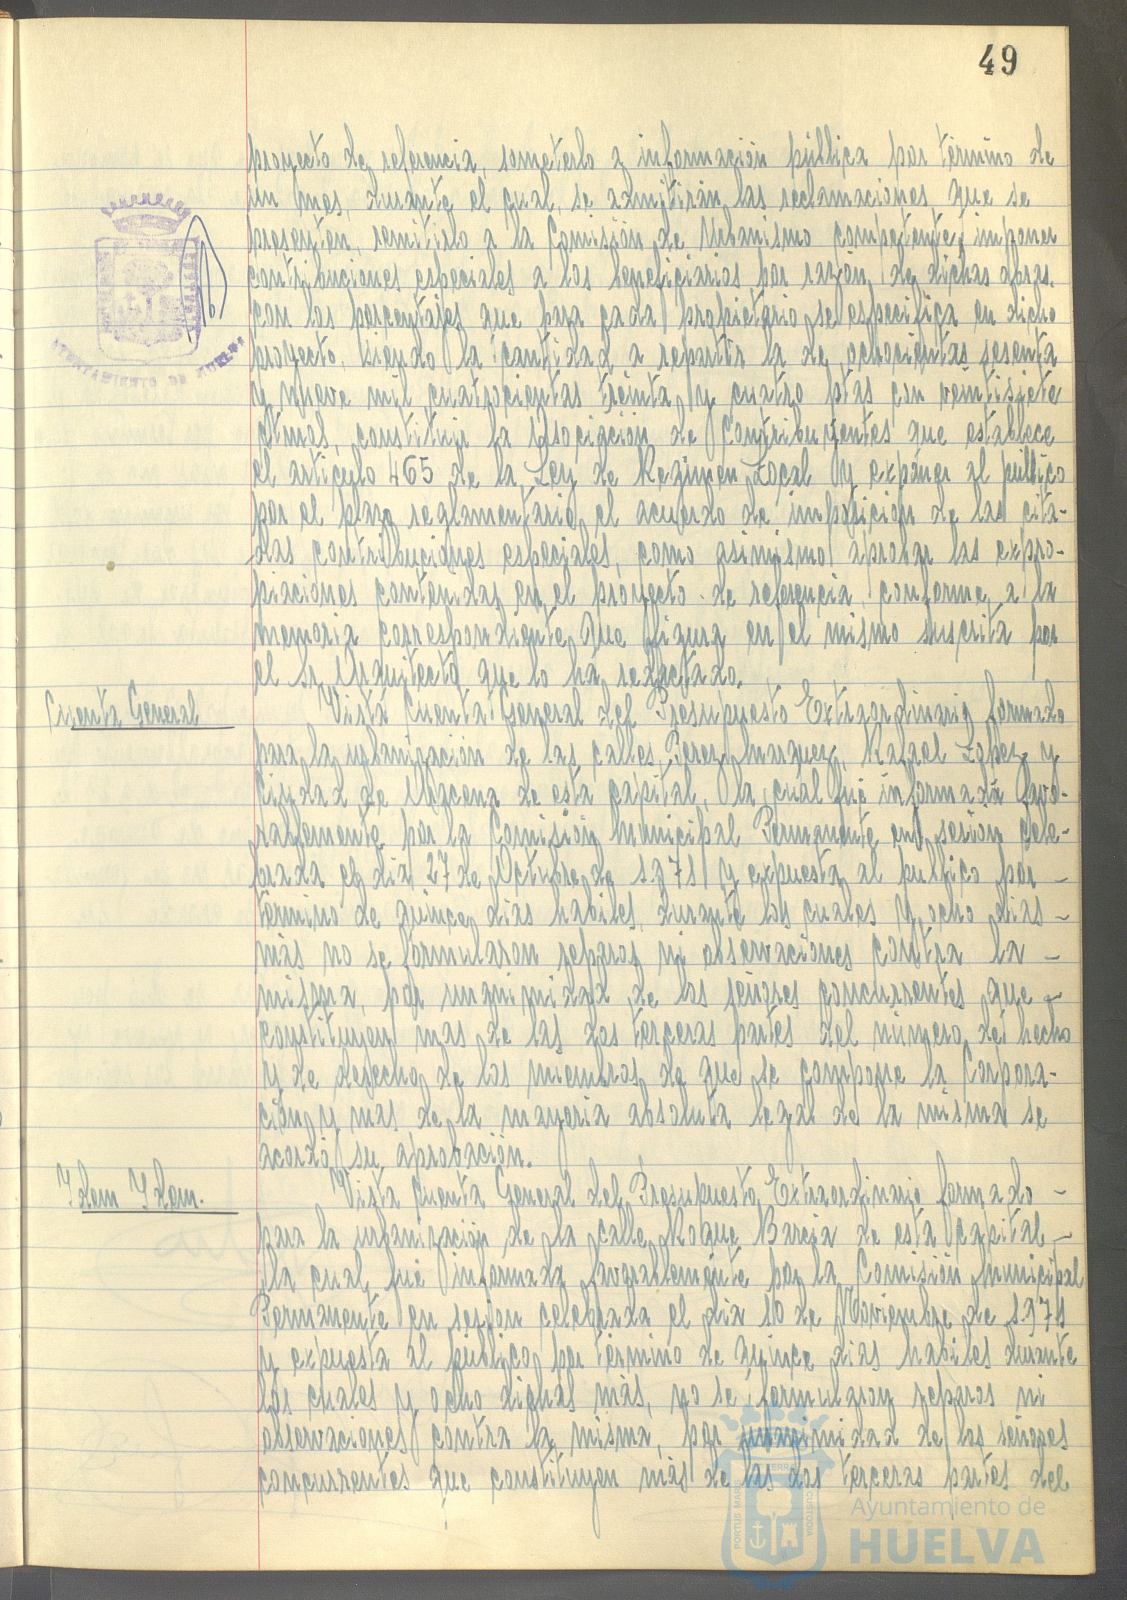 49
proyecto de referencia, someterlo a información pública por término de
un mes, durante el cual, se admitirán las reclamaciones que se
presenten, remitirlo a la Comisión de Urbanismo competente, imponer
contribuciones especiales a los beneficiarios por razón de dichas obras,
con los porcentajes que para cada propietario se especifica en dicho
proyecto. Siendo la cantidad a repartir la de ochocientas sesenta
y nueve mil cuatrocientas treinta y cuatro ptas con veintisiete
ctmos, constituir la Asociación de Contribuyentes que establece
el artículo 465 de la Ley de Regimen Local y exponer al público
por el plazo reglamentario el acuerdo de imposición de las cita-
das contribuciones especiales, como asimismo aprobar las expro-
piaciones contenidas en el proyecto de referencia, conforme a la
memoria correspondiente que figura en el mismo suscrita por
el Sr Arquitecto que lo ha redactado.
Cuenta General
Vista Cuenta General del Presupuesto Extraordinario formado
para la urbanización de las calles Perez Marquez, Rafael Lopez y
Ciudad de Aracena de esta capital, la cual fué informada favo-
rablemente por la Comisión Municipal Permanente en sesion cele-
brada el dia 27 de Octubre de 1.971 y expuesta al publico por -
término de quince dias habiles, durante los cuales y ocho dias -
más no se formularon reparos ni observaciones contra la -
misma, por unanimidad de los señores concurrentes que -
constituyen mas de las dos terceras partes del número de hecho
y de derecho de los miembros de que se compone la Corpora-
ción y mas de la mayoria absoluta legal de la misma se
acordó su aprobación.
Idem Idem.
Vista Cuenta General del Presupuesto Extraordinario formado -
para la urbanización de la calle Roque Barcia de esta capital -
la cual fué informada favorablemente por la Comisión Municipal
Permanente en sesion celebrada el dia 10 de Noviembre de 1.971
y expuesta al publico por termino de quince dias habiles durante
los cuales y ocho dias más, no se formularon reparos ni
observaciones contra la misma, por unanimidad de los señores
concurrentes que constituyen más de las dos terceras partes del
AYUNTAMIENTO DE HUELVA
PORTUS MARIS
TERRAE
CUSTODIA
Ayuntamiento de
HUELVA